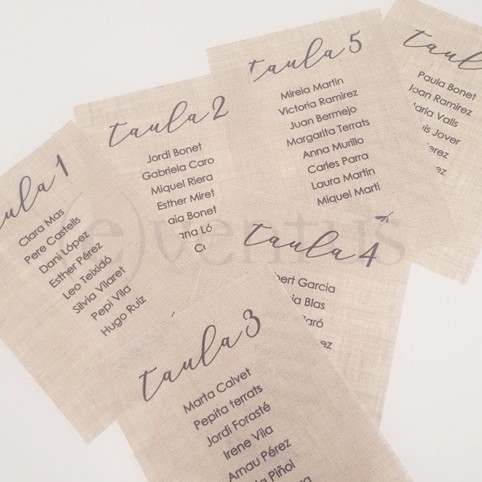 taula 1
Clara Mas
Pere Castells
Dani López
Esther Pérez
Leo Teixidó
Silvia Vilaret
Pepi Vila
Hugo Ruiz
taula 2
Jordi Bonet
Gabriela Caro
Miquel Riera
Esther Miret
aia Bonet
ana Ló
taula 5
Mireia Martin
Victoria Ramirez
Juan Bermejo
Margarita Terrats
Anna Murillo
Carles Parra
Laura Martin
Miquel Marti
taula
Paula Bonet
Joan Ramirez
Maria Valls
is Jover
erez
erez
taula 4
ert Garcia
ia Blas
aró
ez
taula 3
Marta Calvet
Pepita terrats
Jordi Forasté
Irene Vila
Arnau Pérez
Piñol
(e)ventus